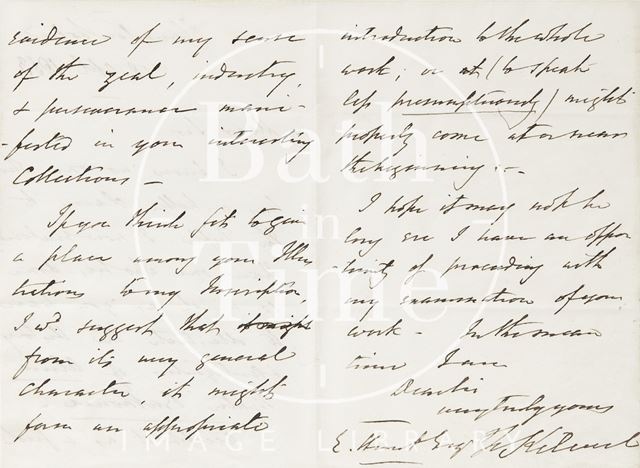 evidence of my sense
of the zeal, industry,
& perseverance mani-
-fested in your interesting
Collections —
If you think fit to give
a place among your Illus
trations to my Inscription,
I wd. suggest that
from its very general
character, it might
form an appropriate
introduction to the whole
work; or it (to speak
less presumptuously) might
properly come at or near
the beginning. —
I hope it may not be
long ere I have an oppor
tunity of proceeding with
my examination of your
work — In the mean
time I am
Dear Sir
very truly yours
E. Hunt Esq
Bath
in
Time
IMAGE LIBRARY